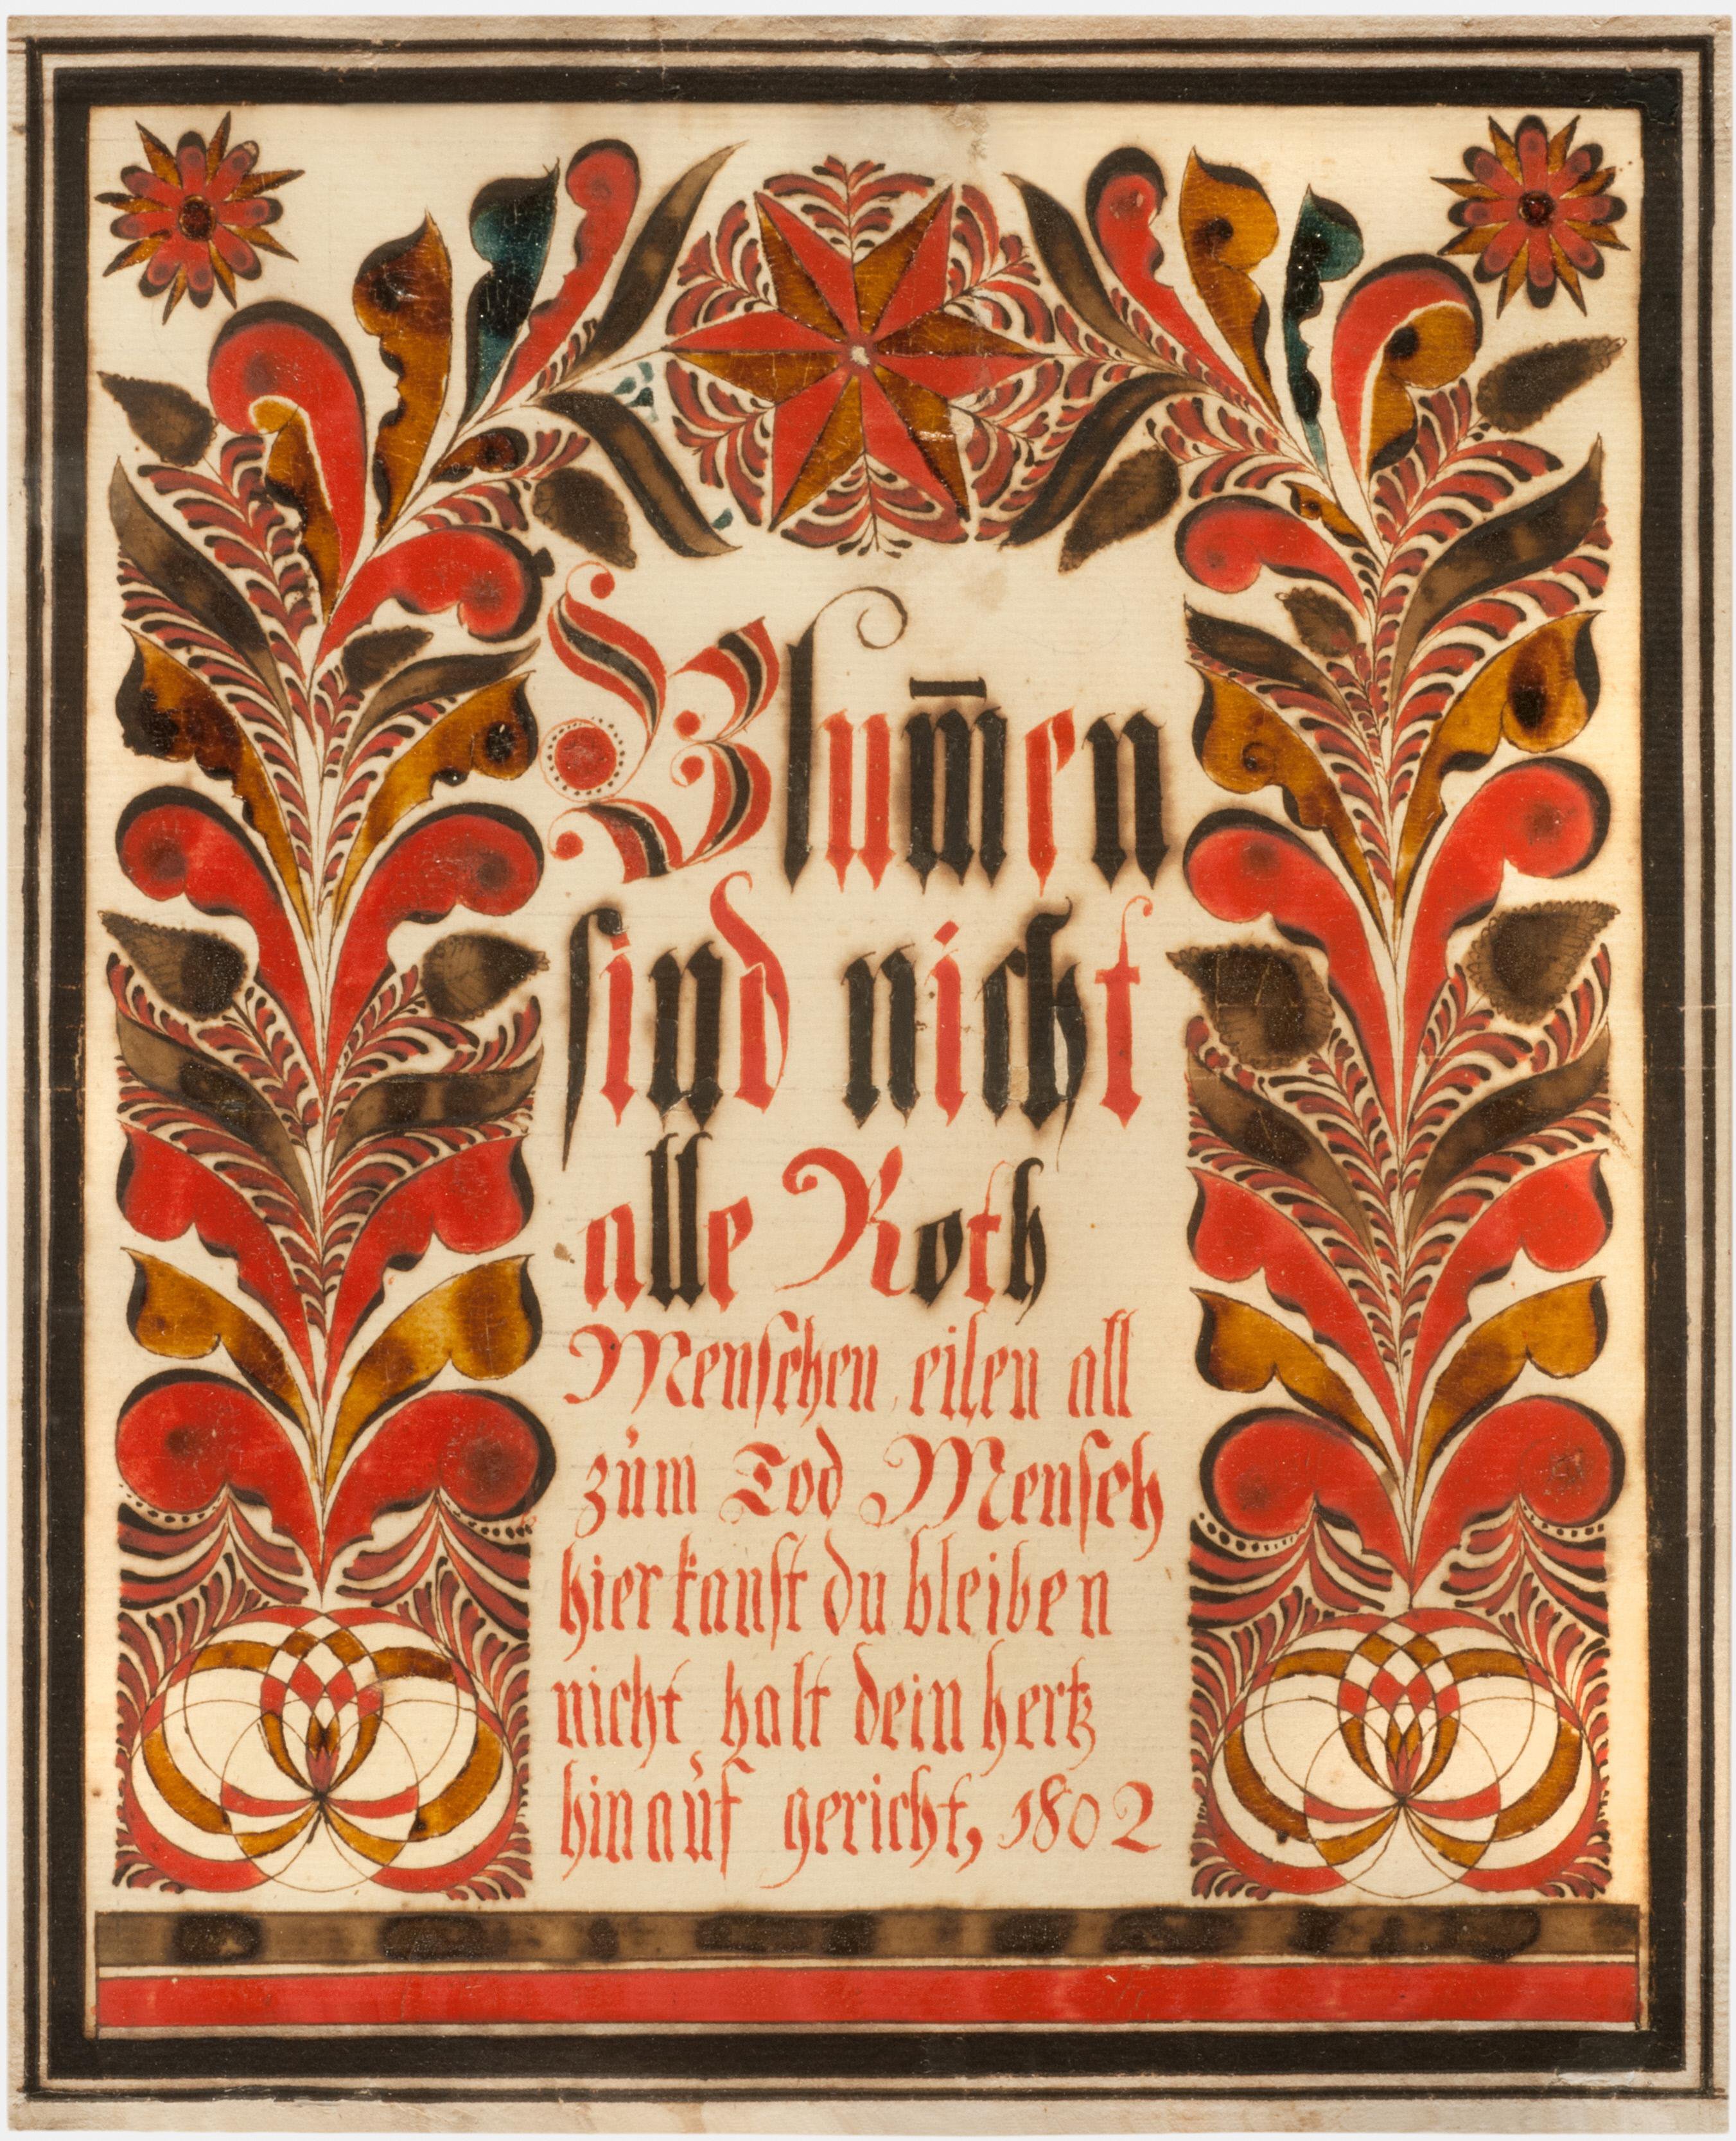 Blum̅en
sind nicht
alle Roth
Menschen eilen all
zŭm Tod Mensch
hier kanst du bleiben
nicht halt dein hertz
hinaŭf gericht, 1802